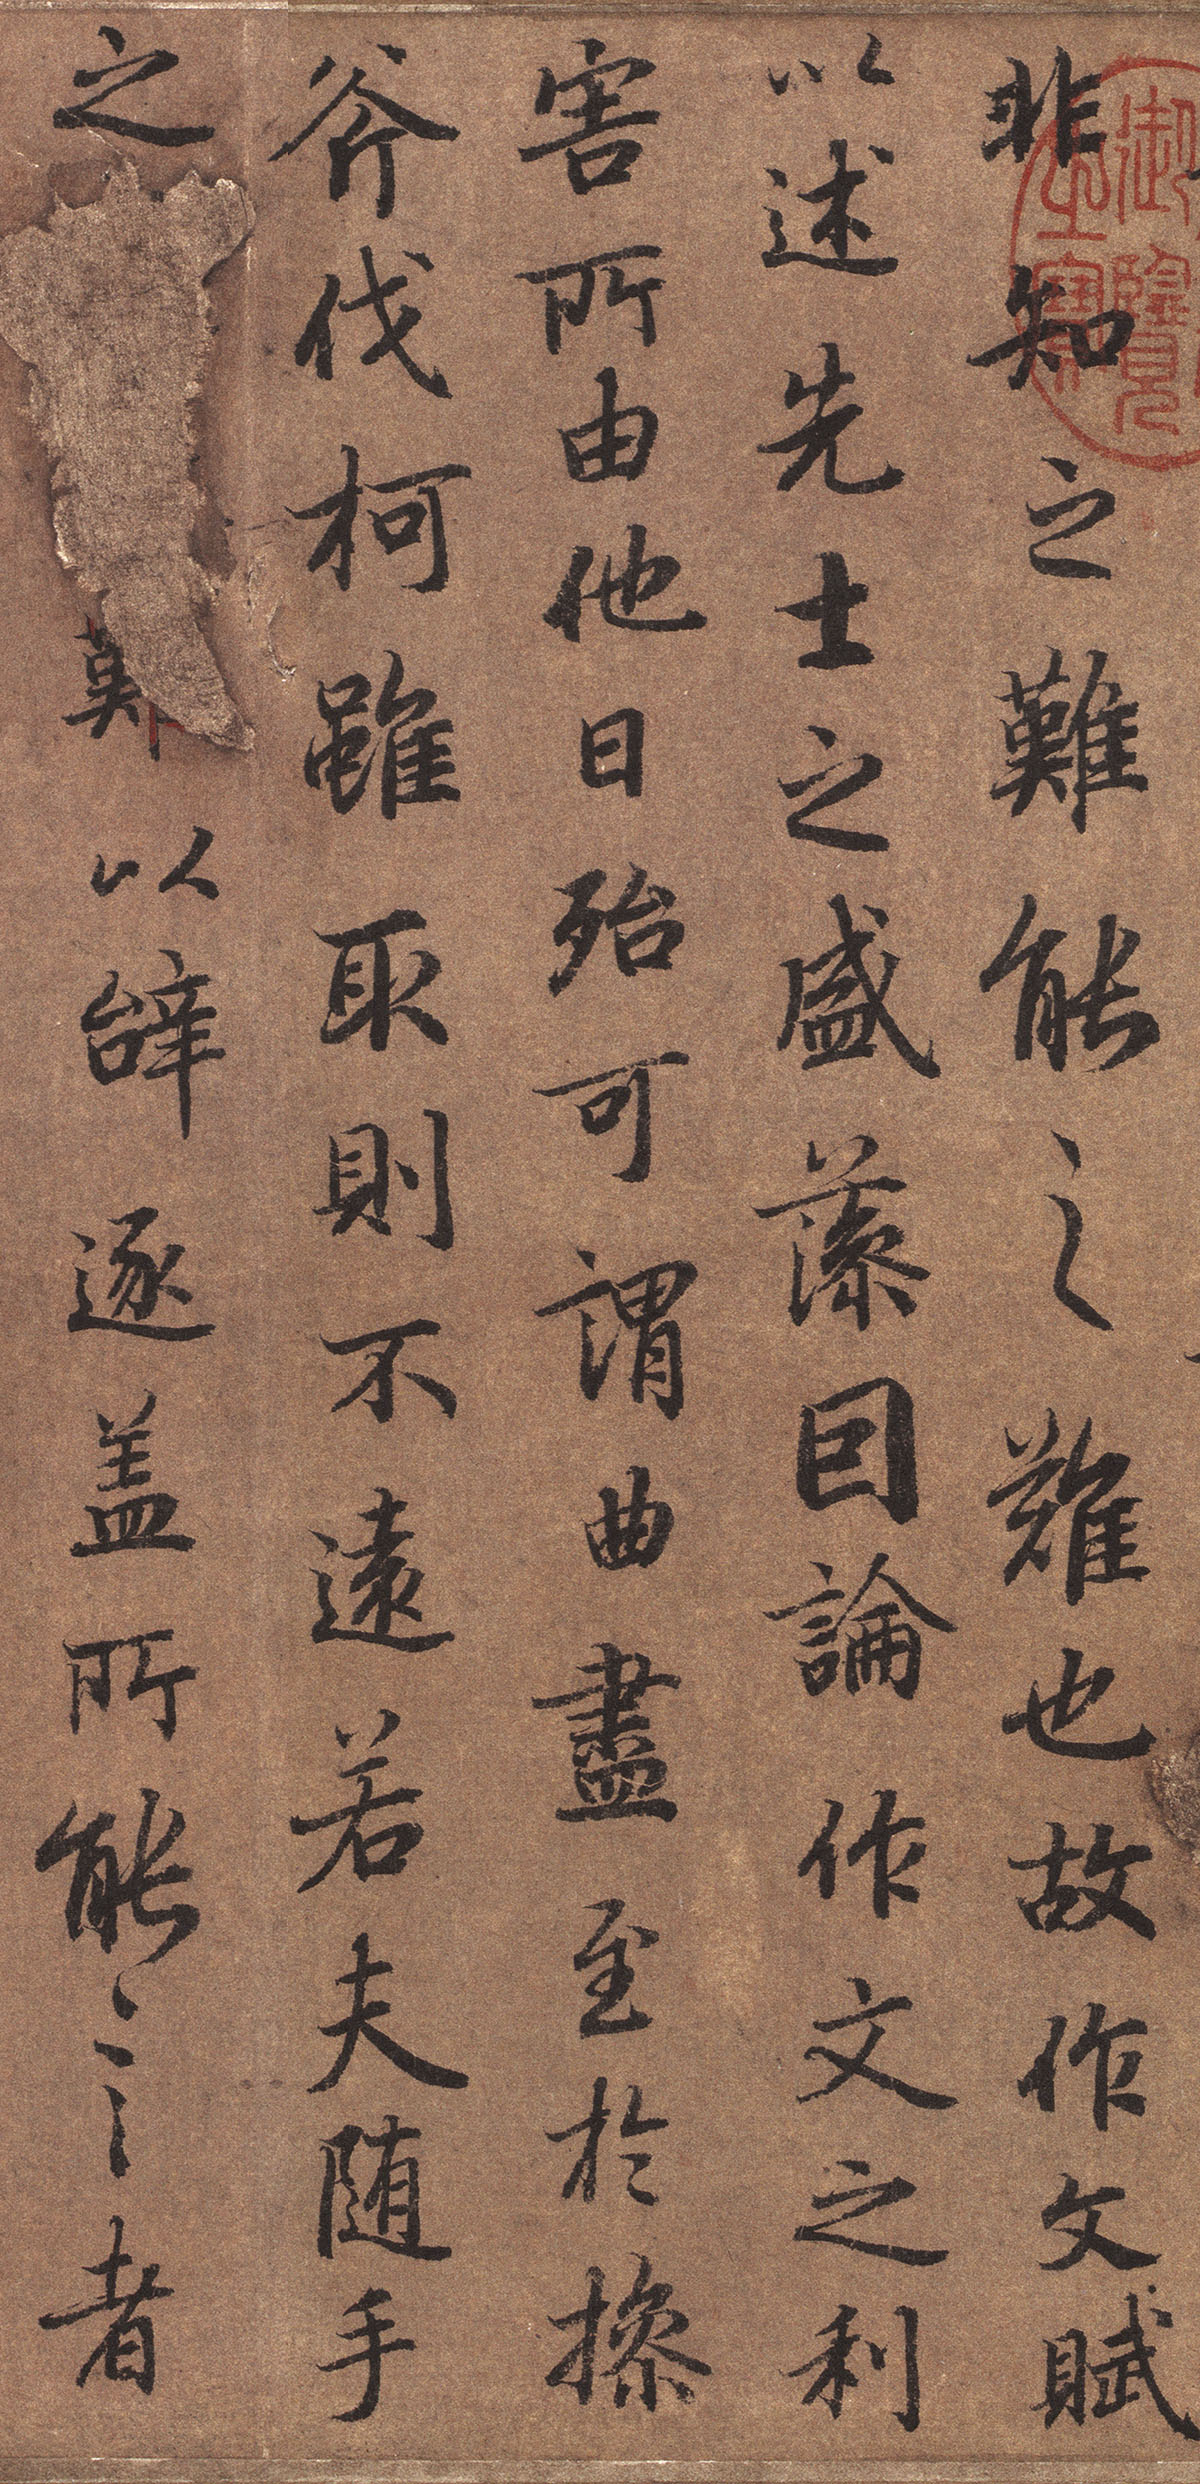 非知之難能之難也故作文賦
以述先士之盛藻囙論作文之利
害所由他日殆可謂曲盡至於操
斧伐柯雖取則不遠若夫随手
之難以辝逐盖所能言者
御覽之寶